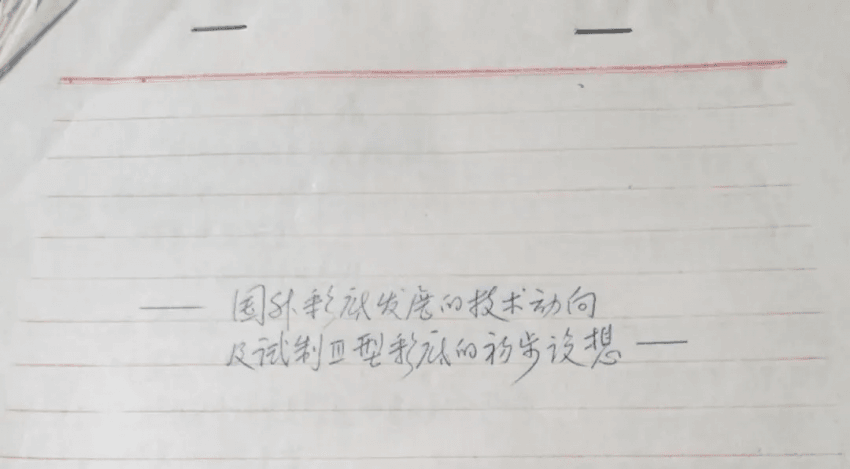 —— 国外彩底发展的技术动向
及试制Ⅱ型彩底的初步设想 ——